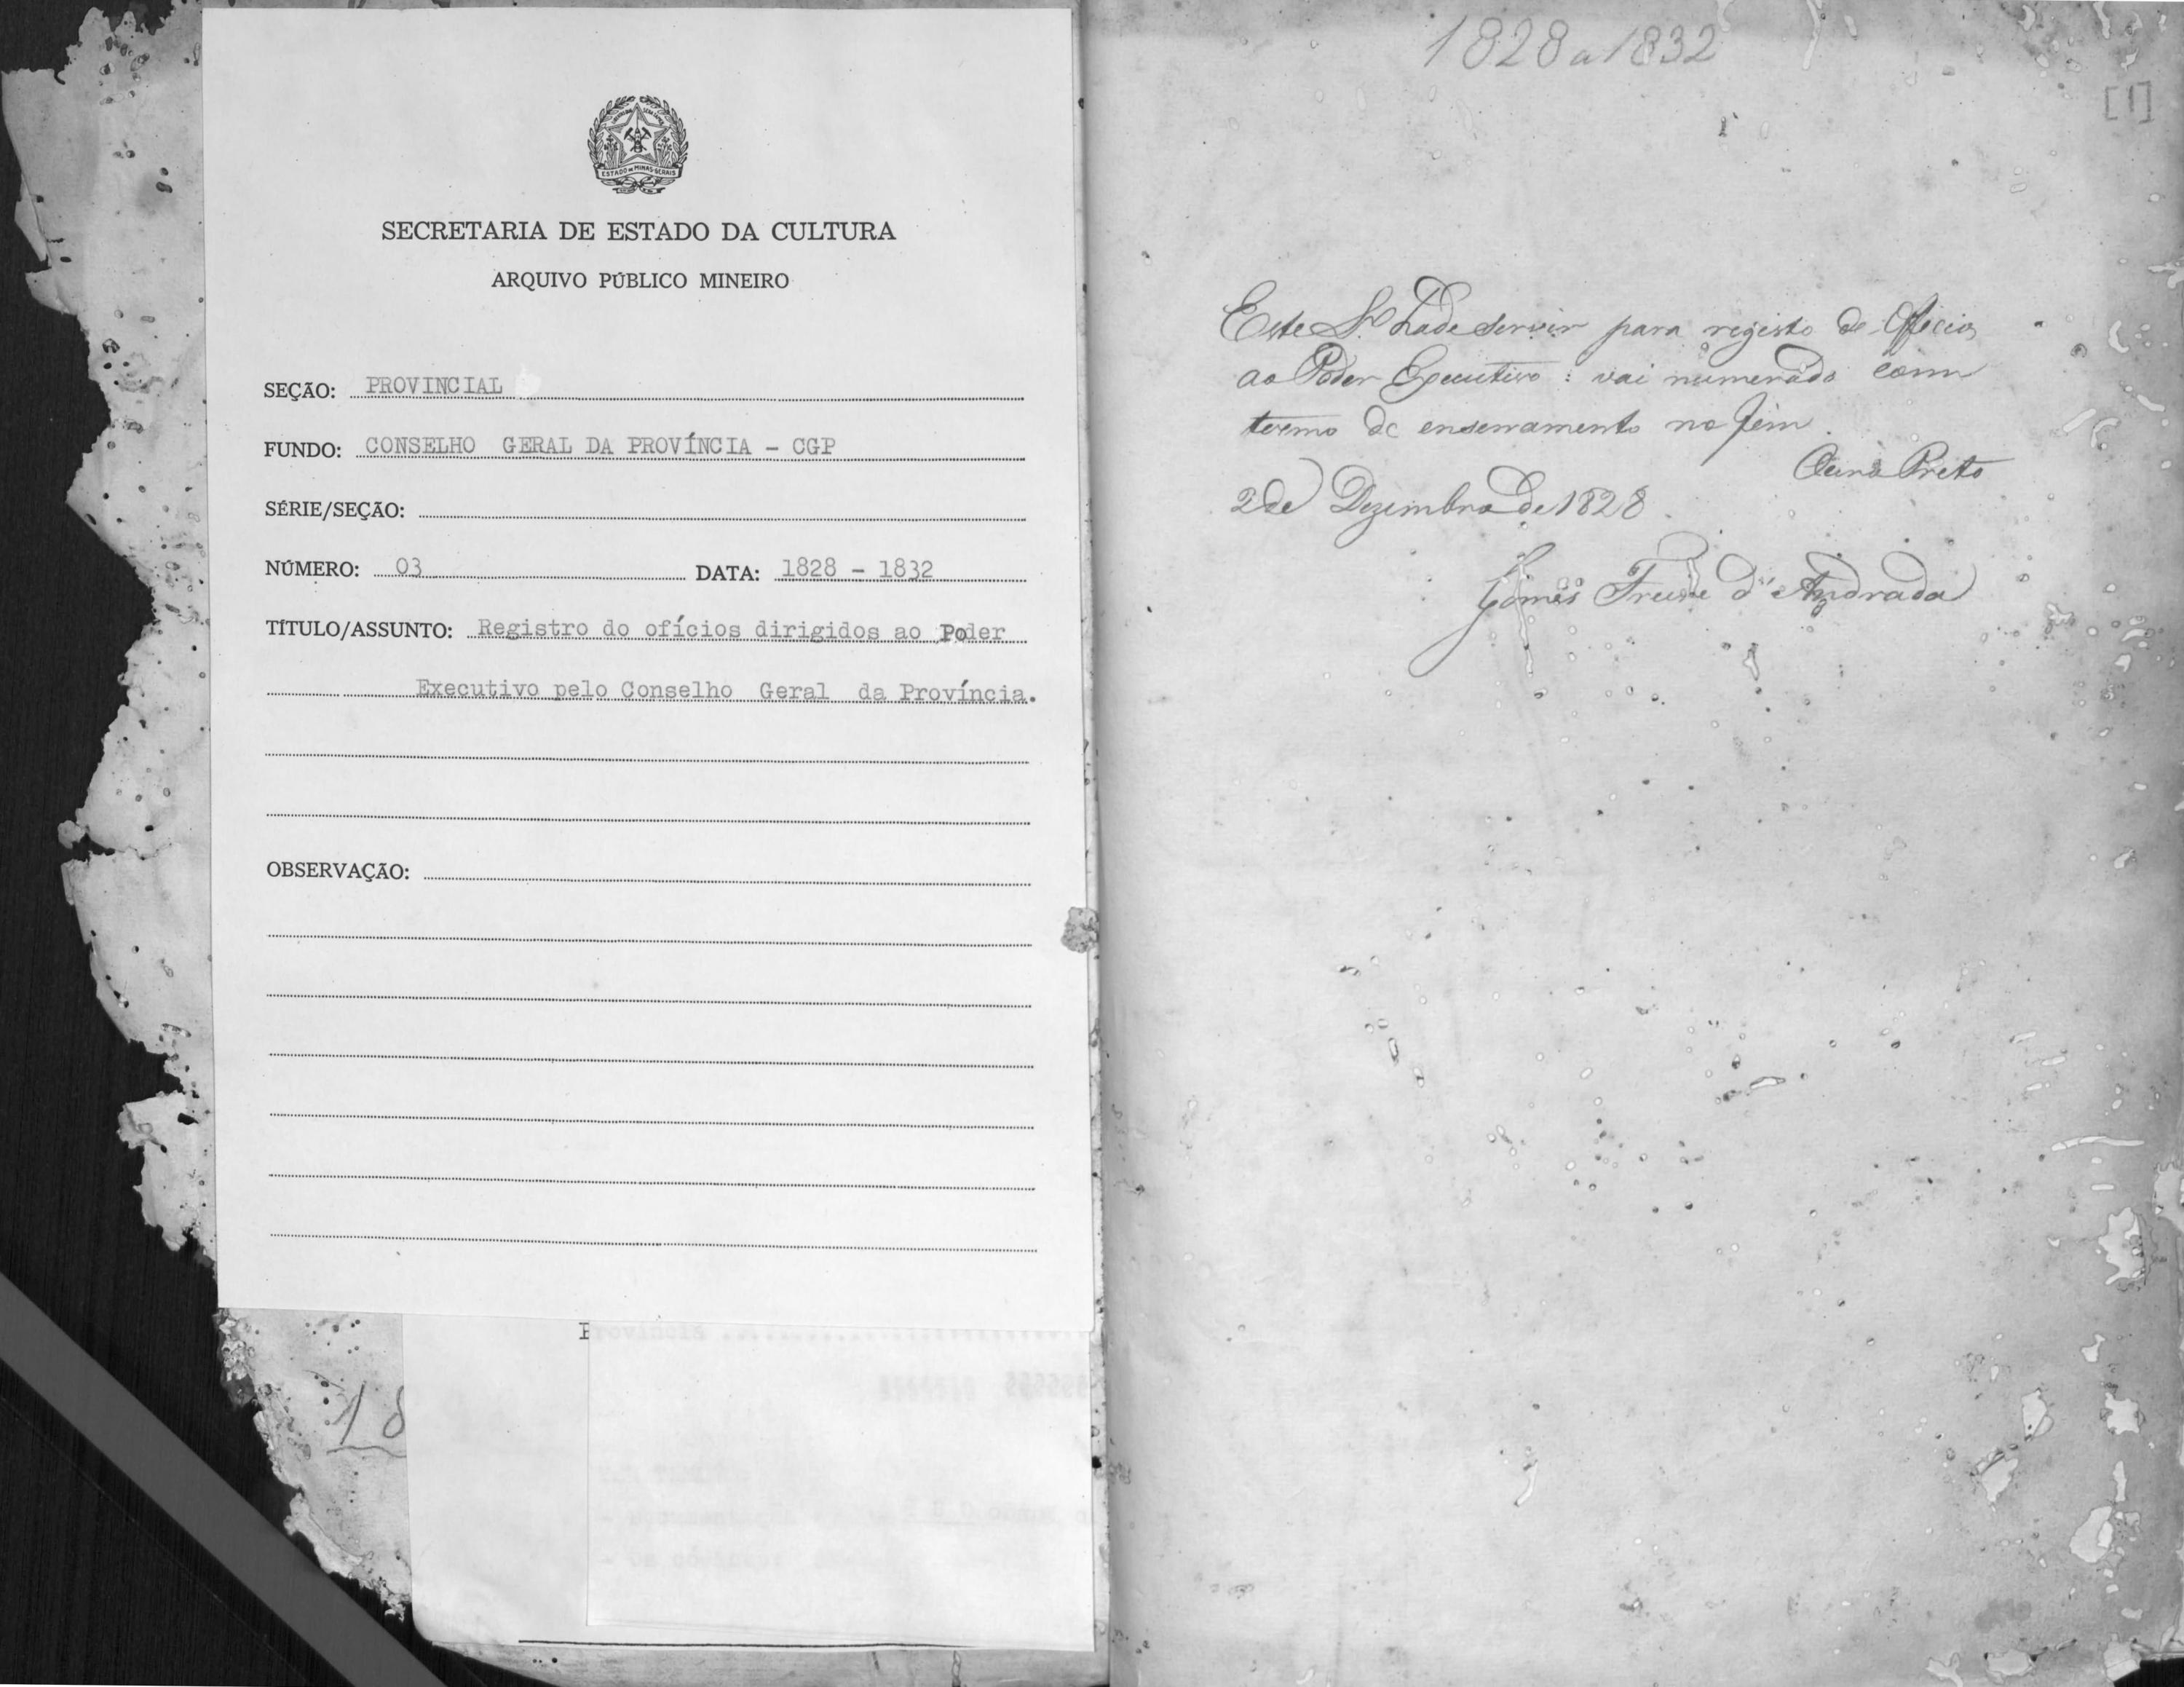 ESTADO DE MINAS GERAIS
SECRETARIA DE ESTADO DA CULTURA
ARQUIVO PÚBLICO MINEIRO
SEÇÃO: PROVINCIAL
FUNDO: CONSELHO GERAL DA PROVÍNCIA - CGP
SÉRIE/SEÇÃO:
NÚMERO: 03 DATA: 1828 - 1832
TÍTULO/ASSUNTO: Registro do ofícios dirigidos ao Poder
Executivo pelo Conselho Geral da Província.
OBSERVAÇÃO:
Provincia
18
1828 a 1832
[1]
Este L.º hade servir para registo de Officios
ao Poder Executivo : vai numerado com
termo de enserramento no fim.
Ouro Preto
2 de Dezembro de 1828
Gomes Freire d'Andrada